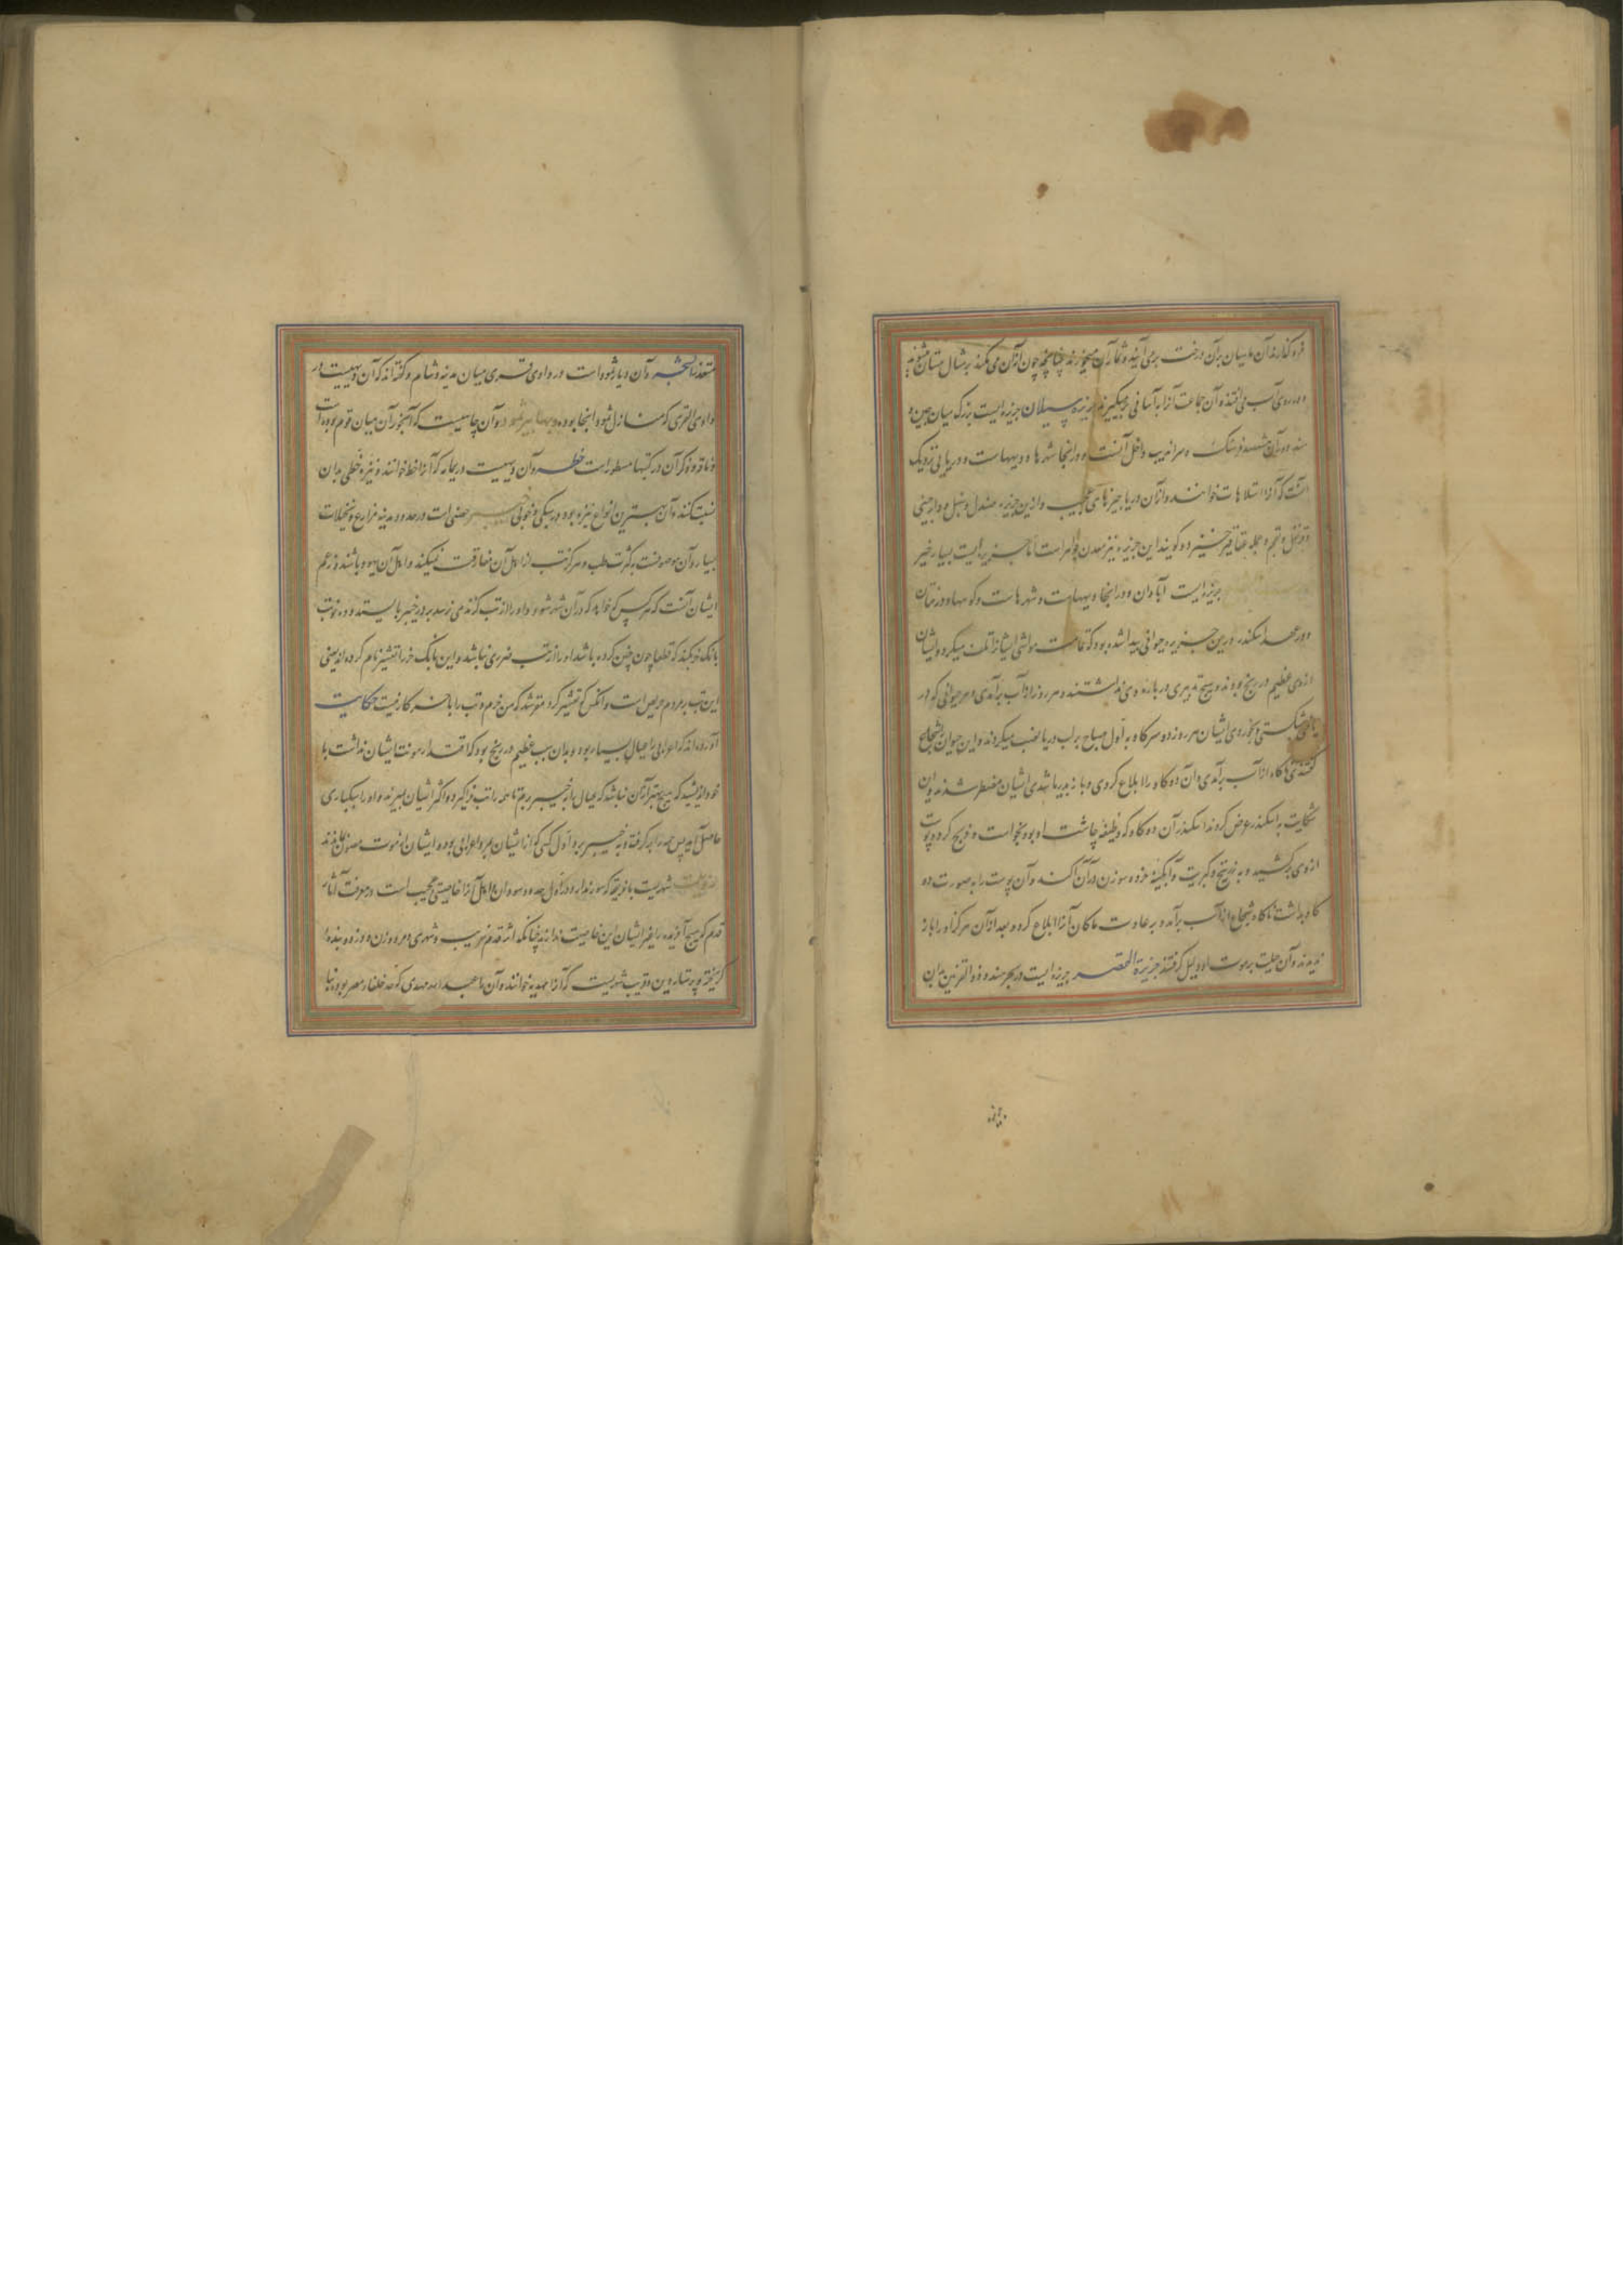 فرو گذارند آن ماهیان بر آن درخت برمی آیند و ثمار آن میخورند چنانچه چون از آن می مکند بر مثال مستان میشوند
و بر روی آب می افتند و آن جماعت آنرا به آسانی برمیگیرند جزیره سیلان جزیره ایست بزرگ میان چین و
هند دور آن هشتصد فرسنگ و سراندیب داخل آنست و در انجا شهرها و دیههاست و دریایی نزدیک
آنست که آنرا شلاهات خوانند و از آن دریا چیزهای عجیب و ازین جزیره صندل و سنبل و دارچینی
و قرنفل و بقم و جمله عقاقیر خیزد و گویند این جزیره نیز معدن جواهر است اما جزیره ایست بسیار خیر
جزیره ایست آبادان و در انجا دیههاست و شهرهاست و کوهها و درختان
و در عهد اسکندر درین جزیره حیوانی پیدا شده بود که تمامت مواشی ایشانرا تلف میکرد و ایشان
از وی عظیم در رنج بودند و هیچ تدبیری درباره وی نداشتند و هر روز از آب برآمدی و هر حیوانی که در
یافتی بشکستی و بخوردی ایشان هر روز دو سر گاو به اول صباح بر لب دریا نصب میکردند و این حیوان شجاع
گفتندی ناگاه از آب برآمدی و آن دو گاو را ابلاع کردی و باز بدریا شدی ایشان مضطر شدند و این
شکایت به اسکندر عرض کردند اسکندر آن دو گاو که وظیفه چاشت او بود بخواست و ذبح کرد و پوست
از وی برکشید و به زرنیخ و کبریت و آبگینه خرده و سوزن در آن آکند و آن پوست را به صورت دو
گاو بداشت ناگاه شجاع از آب برآمد و به عادت ماکان آنرا ابلاع کرد و بعد از آن هرگز او را باز
ندیدند و آن حیلت بر موت او دلیل گرفتند جزیرة القصر جزیره ایست در بحر هند و ذو القرنین بدان
متعذر باشد حجر و آن دیار ثمود است در وادی قری میان مدینه و شام و گفته اند که آن دیهیست در
وادی القری که منازل ثمود انجا بوده و بئر ثمود در آن چاهیست که آبخور آن میان قوم بوده است
و ناقه و ذکر آن در کتبها مسطور است خط و آن دیهیست در یمامه که آنرا خط خوانند و نیزه خطی بدان
نسبت کنند و آن بهترین انواع نیزه بود در سبکی و خوبی خیبر حصنی است در حدود مدینه مزارع و نخیلات
بسیار و آن موصوفست به کثرت طب و هرگز تب از اهل آن مفارقت نمیکند و اهل آن یهود باشند و زعم
ایشان آنست که هر کس که خواهد که در آن شهر شود و او را از تب گزندی نرسد بر در خیبر بایستد و ده نوبت
بانگ خر بکند که قطعا چون چنین کرده باشد او را از تب ضرری نباشد و این بانگ خر را تعشیر نام کرده اند یعنی
این تب بر مردم حریص است و آنکس که تعشیر کرد مقر شد که من خرم و تب را با خر کار نیست حکایت
آورده اند که اعرابی را عیال بسیار بود و بدان سبب عظیم در رنج بود که اقتدار مونت ایشان نداشت با
خود اندیشید که هیچ بهتر از آن نباشد که عیال را به خیبر برم تا همه را تب فراگیرد و اکثر ایشان بمیرند و او را سبکباری
حاصل آید پس همه را برگرفته و به خیبر برد اول کسی که از ایشان بمرد اعرابی بود و ایشان از موت مصون ماندند
شهریست
قدم که هیچ آفریده را غیر ایشان این خاصیت ندارند چنانکه اثر قدم غریب و شهری و مرد و زن و دزد و بنده
گریخته و پرستار و بدین قریب شهریست که آنرا مهدیه خوانند و آن را عبد الله مهدی که جد خلفاء مصر بوده بنا